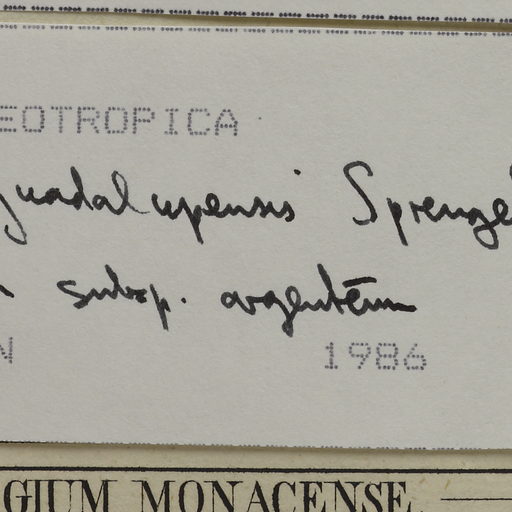 EOTROPICA
guadalupensis Sprengel
subsp. argenteum
N 1986
GIUM MONACENSE